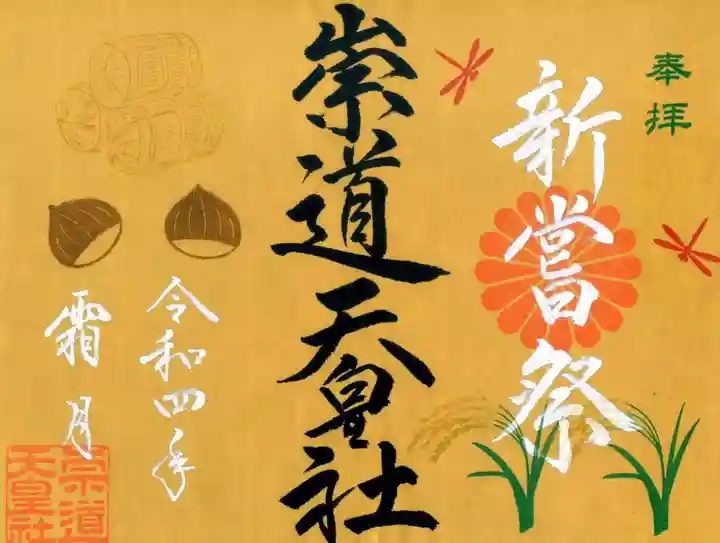 奉拝
新嘗祭
崇道天皇社
令和四年
霜月
崇道
天皇社